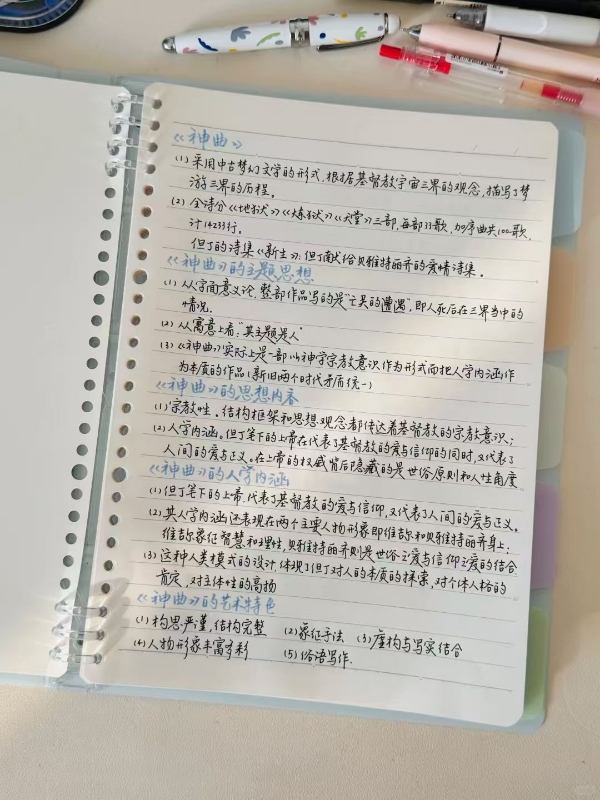 《神曲》
(1) 采用中古梦幻文学的形式，根据基督教宇宙三界的观念，描写了梦
游三界的历程。
(2) 全诗分《地狱》《炼狱》《天堂》三部，每部33歌，加序曲共100歌，
计14233行。
但丁的诗集《新生》：但丁献给贝雅特丽齐的爱情诗集。
《神曲》的主题思想
(1) 从字面意义论，整部作品写的是“亡灵的遭遇”，即人死后在三界当中的
情况。
(2) 从寓意上看，“其主题是人”
(3) 《神曲》实际上是一部以神学宗教意识作为形式而把人学内涵作
为本质的作品（新旧两个时代矛盾统一）
《神曲》的思想内容
(1) 宗教性。结构框架和思想观念都传达着基督教的宗教意识；
(2) 人学内涵。但丁笔下的上帝在代表了基督教的爱与信仰的同时，又代表了
人间的爱与正义。在上帝的权威背后隐藏的是世俗原则和人性角度
《神曲》的人学内涵
(1) 但丁笔下的上帝，代表了基督教的爱与信仰，又代表了人间的爱与正义。
(2) 其人学内涵还表现在两个主要人物形象即维吉尔和贝雅特丽齐身上：
维吉尔象征智慧和理性，贝雅特丽齐则是世俗之爱与信仰之爱的结合
(3) 这种人类模式的设计，体现了但丁对人的本质的探索，对个体人格的
肯定，对主体性的高扬
《神曲》的艺术特色
(1) 构思严谨，结构完整 (2) 象征手法 (3) 虚构与写实结合
(4) 人物形象丰富多彩 (5) 俗语写作．